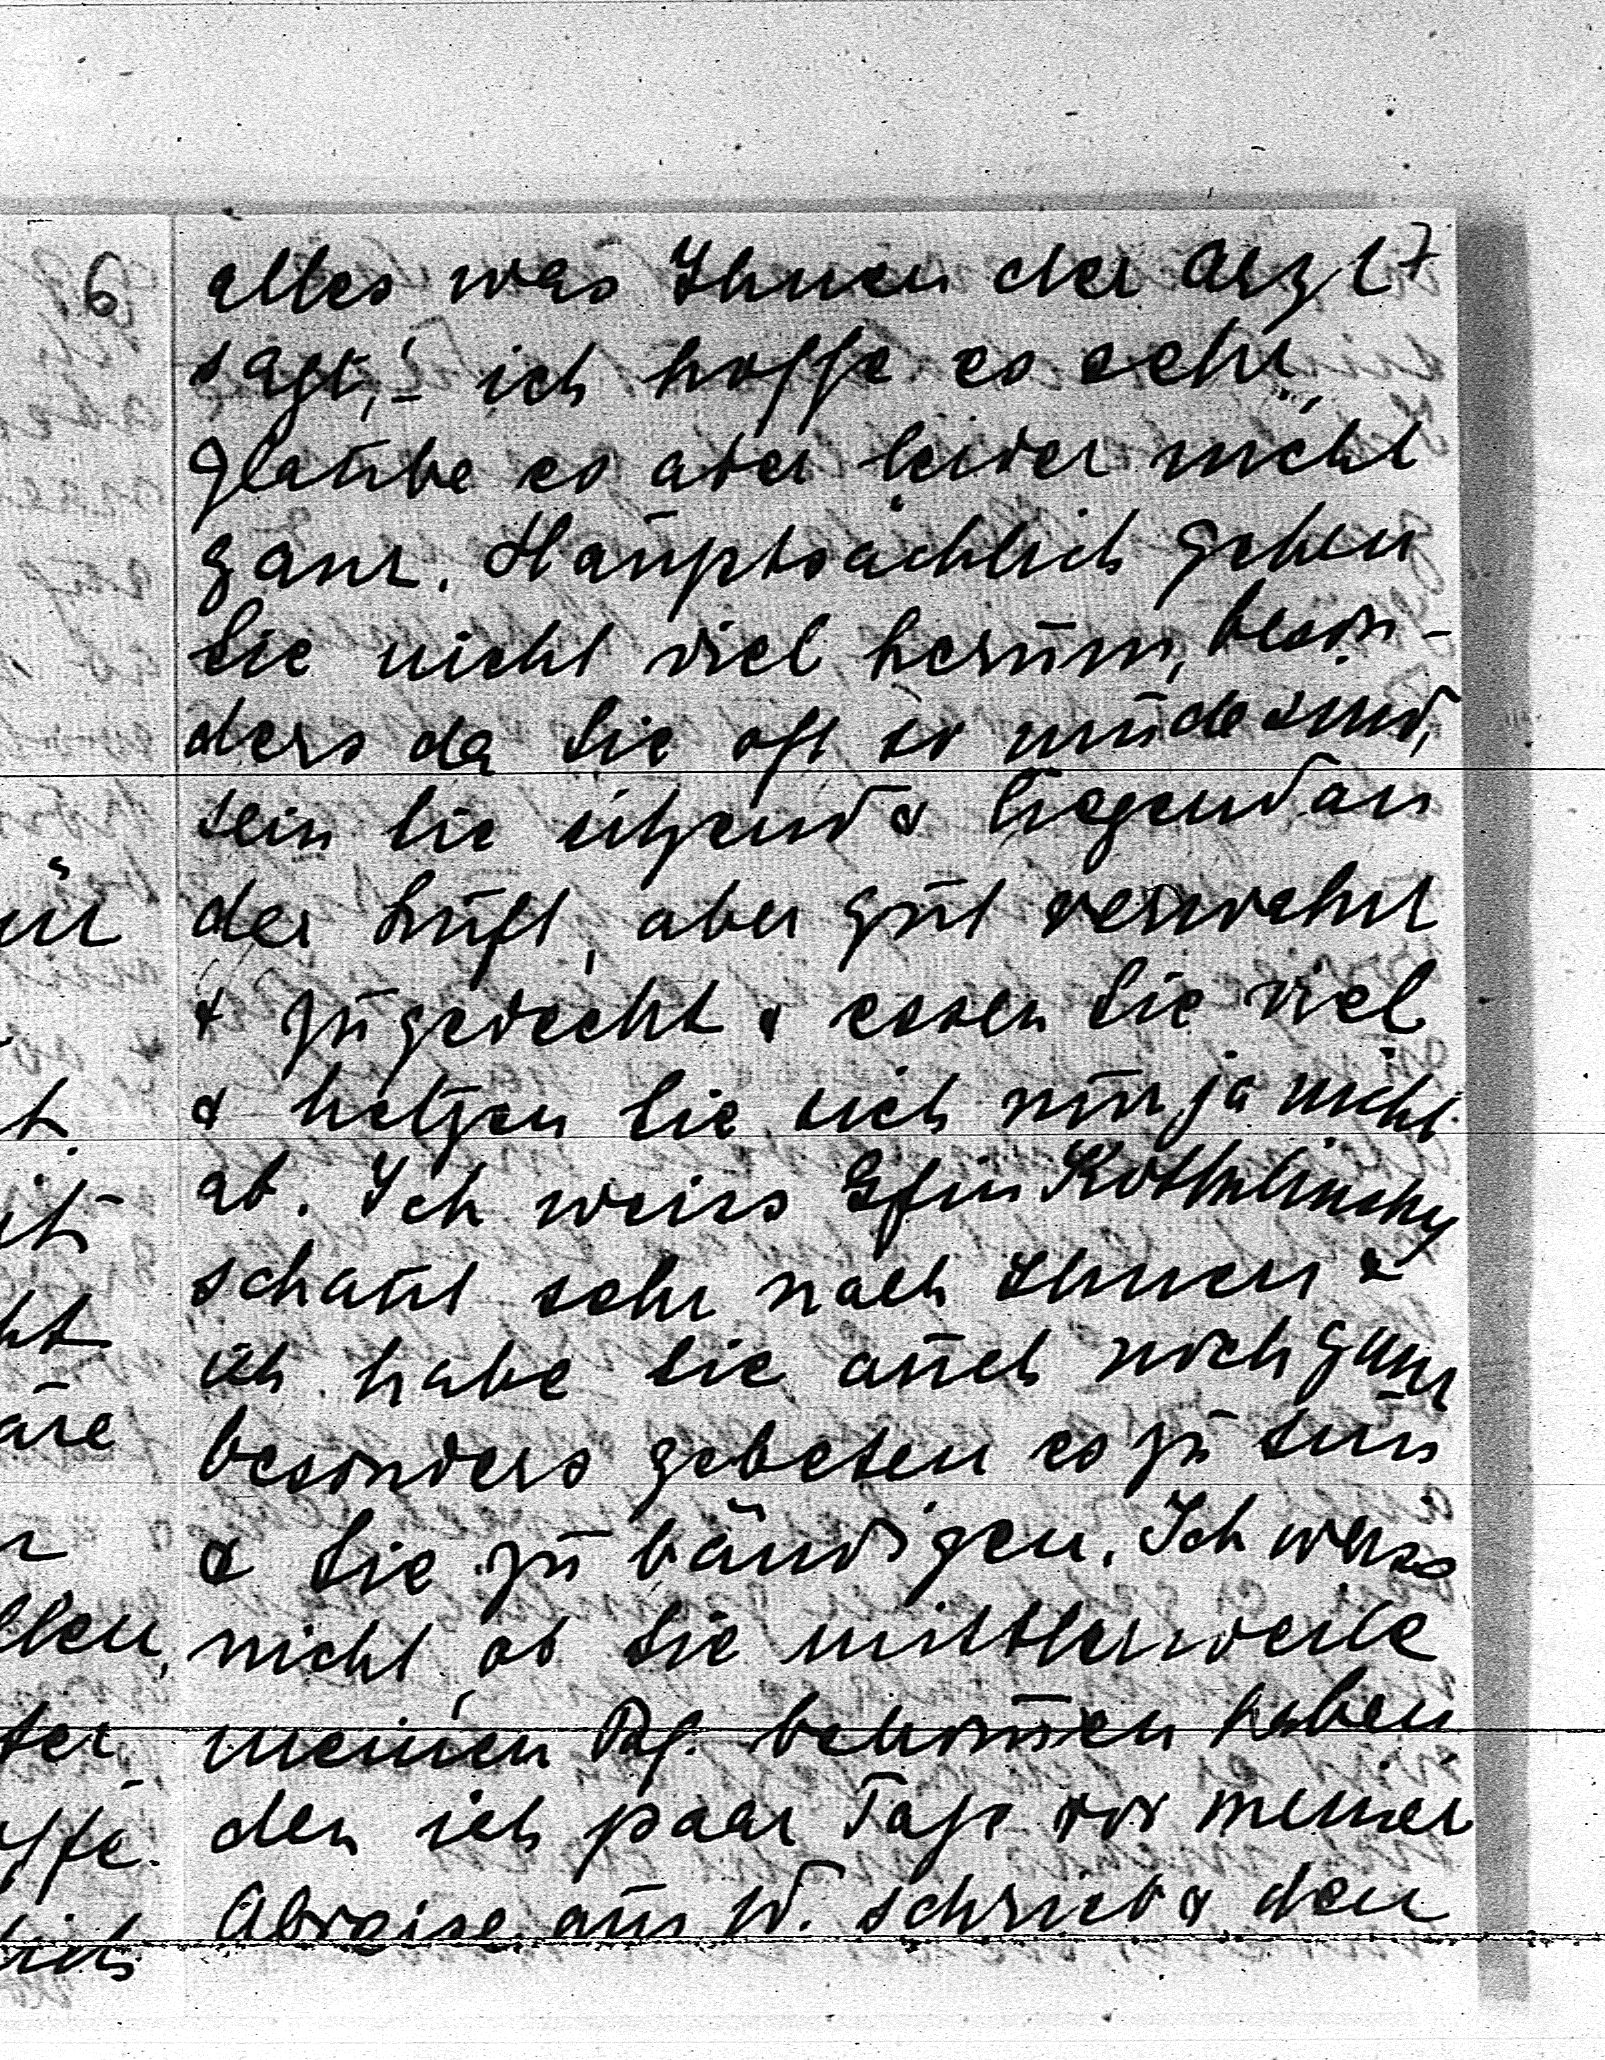 6
7
alles was Ihnen der Arzt
sagt, – ich hoffe es sehr,
glaube es aber leider nicht
ganz. Hauptsächlich gehen
Sie nicht viel herum, beson-
ders da Sie oft so müde sind,
sein Sie sitzend & liegend an
der Luft, aber gut verwahrt
& zugedeckt & essen Sie viel
& hetzen Sie sich nur ja nicht
ab. Ich weiss Gfin Kothulinsky
schaut sehr nach Ihnen &
ich habe sie auch noch ganz
besonders gebeten es zu tun
& Sie zu bändigen. Ich weiss
nicht, ob Sie mittlerweile
meinen Bf. bekommen haben
den ich paar Tage vor meiner
Abreise aus W. schrieb & den